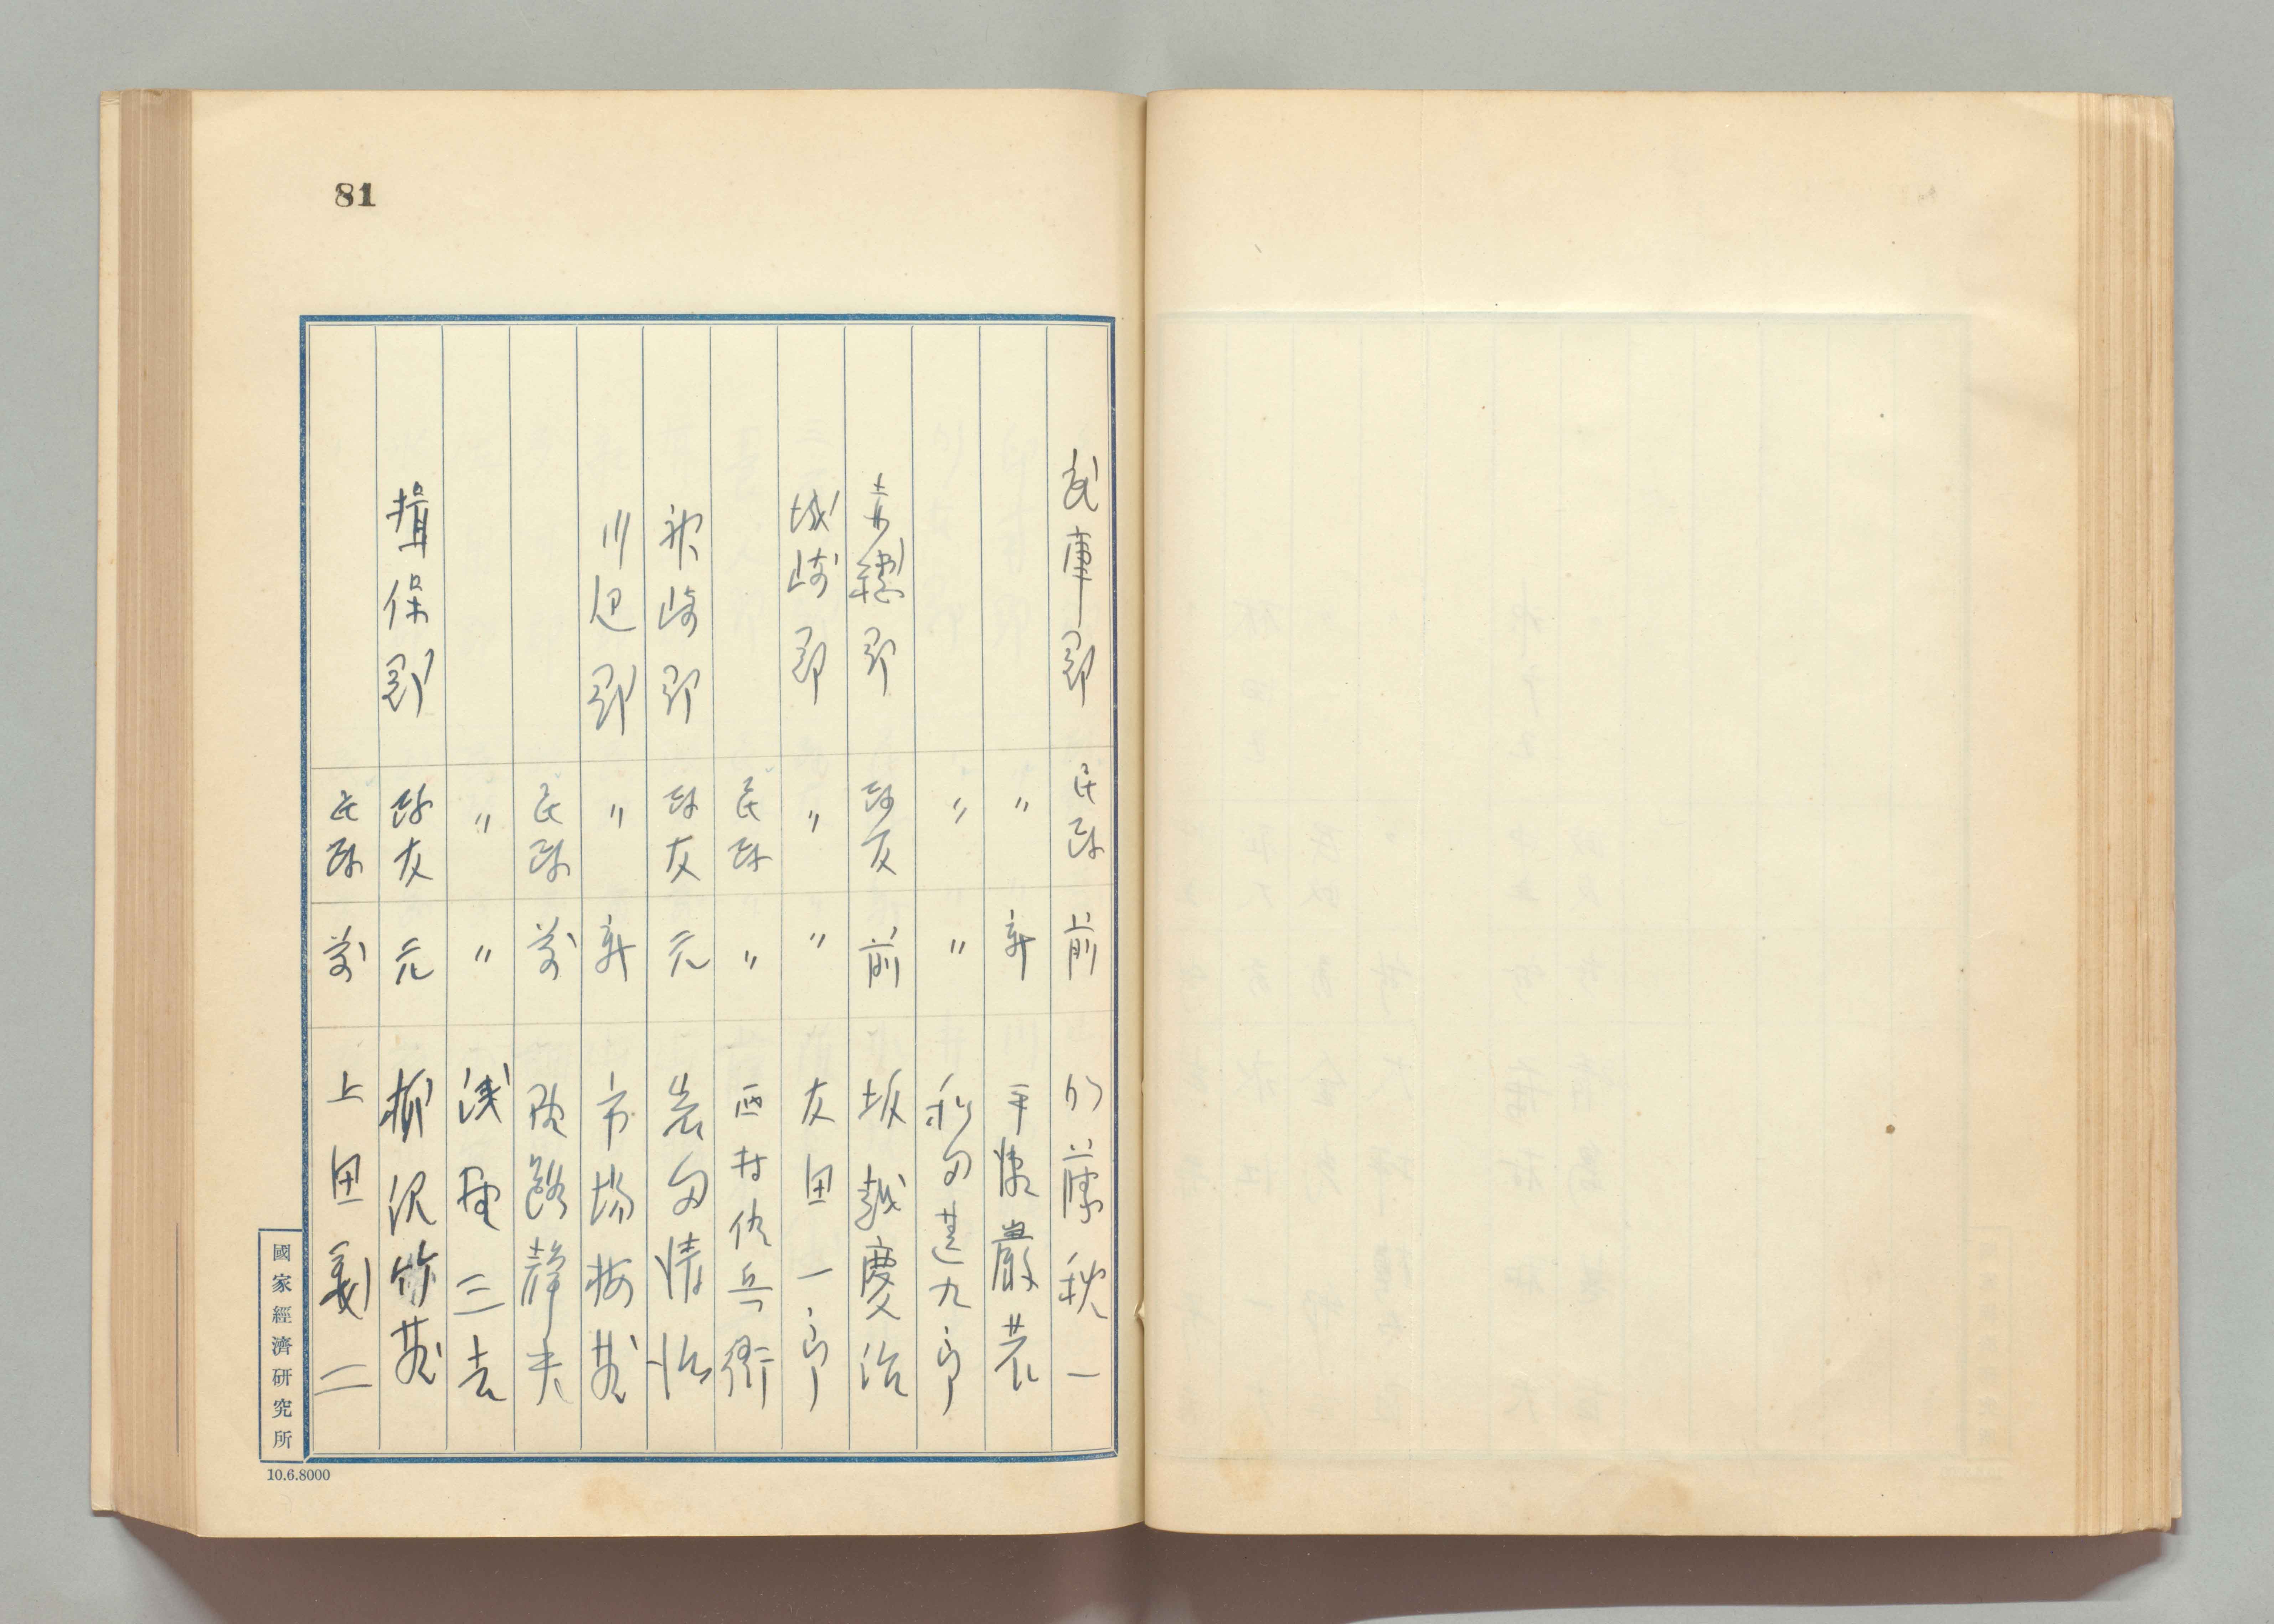 81
武庫郡 民政 前 加藤秋一
〃 新 平瀬巌
〃 〃 九郎
赤穂郡 政友 前 坂越慶治
城崎郡 〃 〃 友田一郎
民政 〃 西村佐兵衛
神崎郡 政友 元 岩田情治
川辺郡 〃 新 市場
民政 前 静夫
〃 〃 浅 三
揖保郡 政友 元 柳沢
民政 前 上田義二
國家經濟研究所
10.6.8000